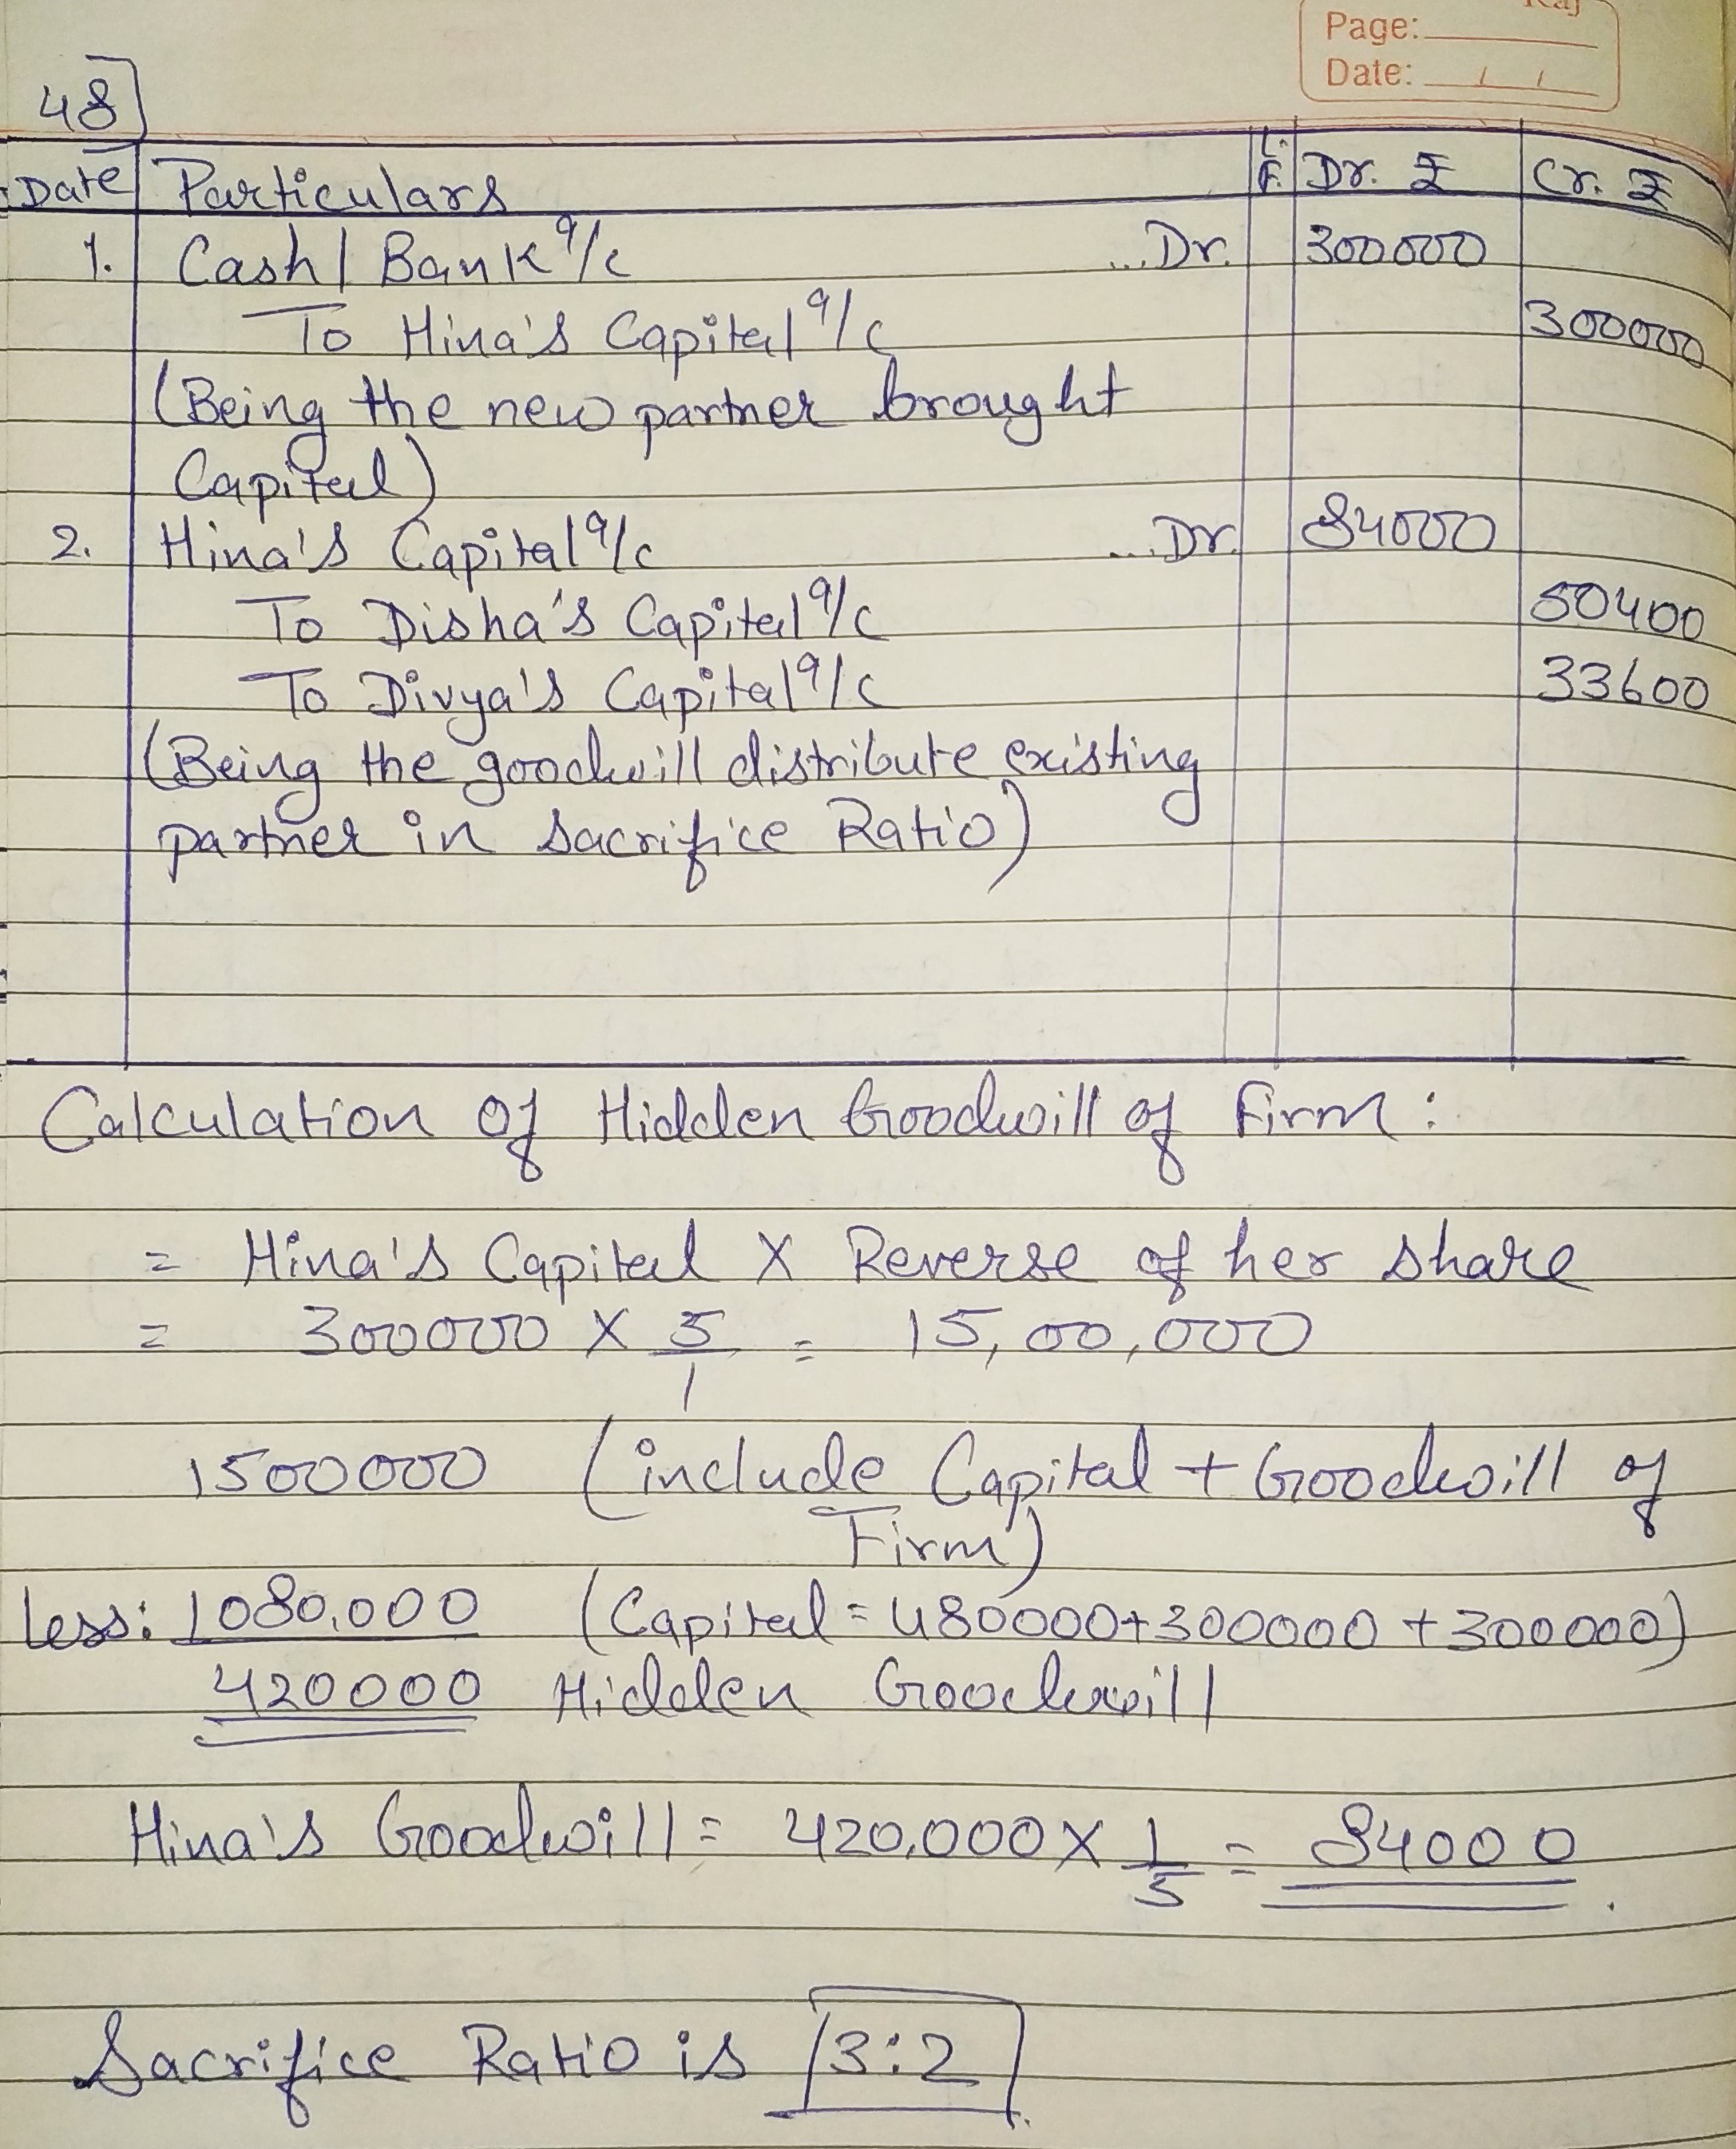 Page:
Date: / /
48]
Date Particulars L.F. Dr. ₹ Cr. ₹
1. Cash/Bank a/c ...Dr. 300000
To Hina's Capital a/c 300000
(Being the new partner brought
Capital)
2. Hina's Capital a/c ...Dr. 84000
To Disha's Capital a/c 50400
To Divya's Capital a/c 33600
(Being the goodwill distribute existing
partner in sacrifice Ratio)
Calculation of Hidden Goodwill of Firm:
= Hina's Capital X Reverse of her share
= 300000 X 5/1 = 15,00,000
1500000 (include Capital + Goodwill of
Firm)
Less: 1080,000 (Capital = 480000+300000+300000)
420000 Hidden Goodwill
Hina's Goodwill = 420,000 X 1/5 = 84000.
Sacrifice Ratio is 3:2